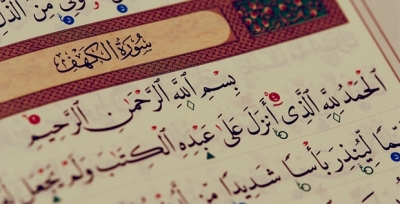 وِيٌّ مِنَ الذُّلِّ
سُورَةُ الكَهْفِ
بِسْمِ اللَّهِ الرَّحْمَٰنِ الرَّحِيمِ
الْحَمْدُ لِلَّهِ الَّذِي أَنْزَلَ عَلَىٰ عَبْدِهِ الْكِتَٰبَ وَلَمْ يَجْعَل
لِّيُنذِرَ بَأْسًا شَدِيدًا مِّن